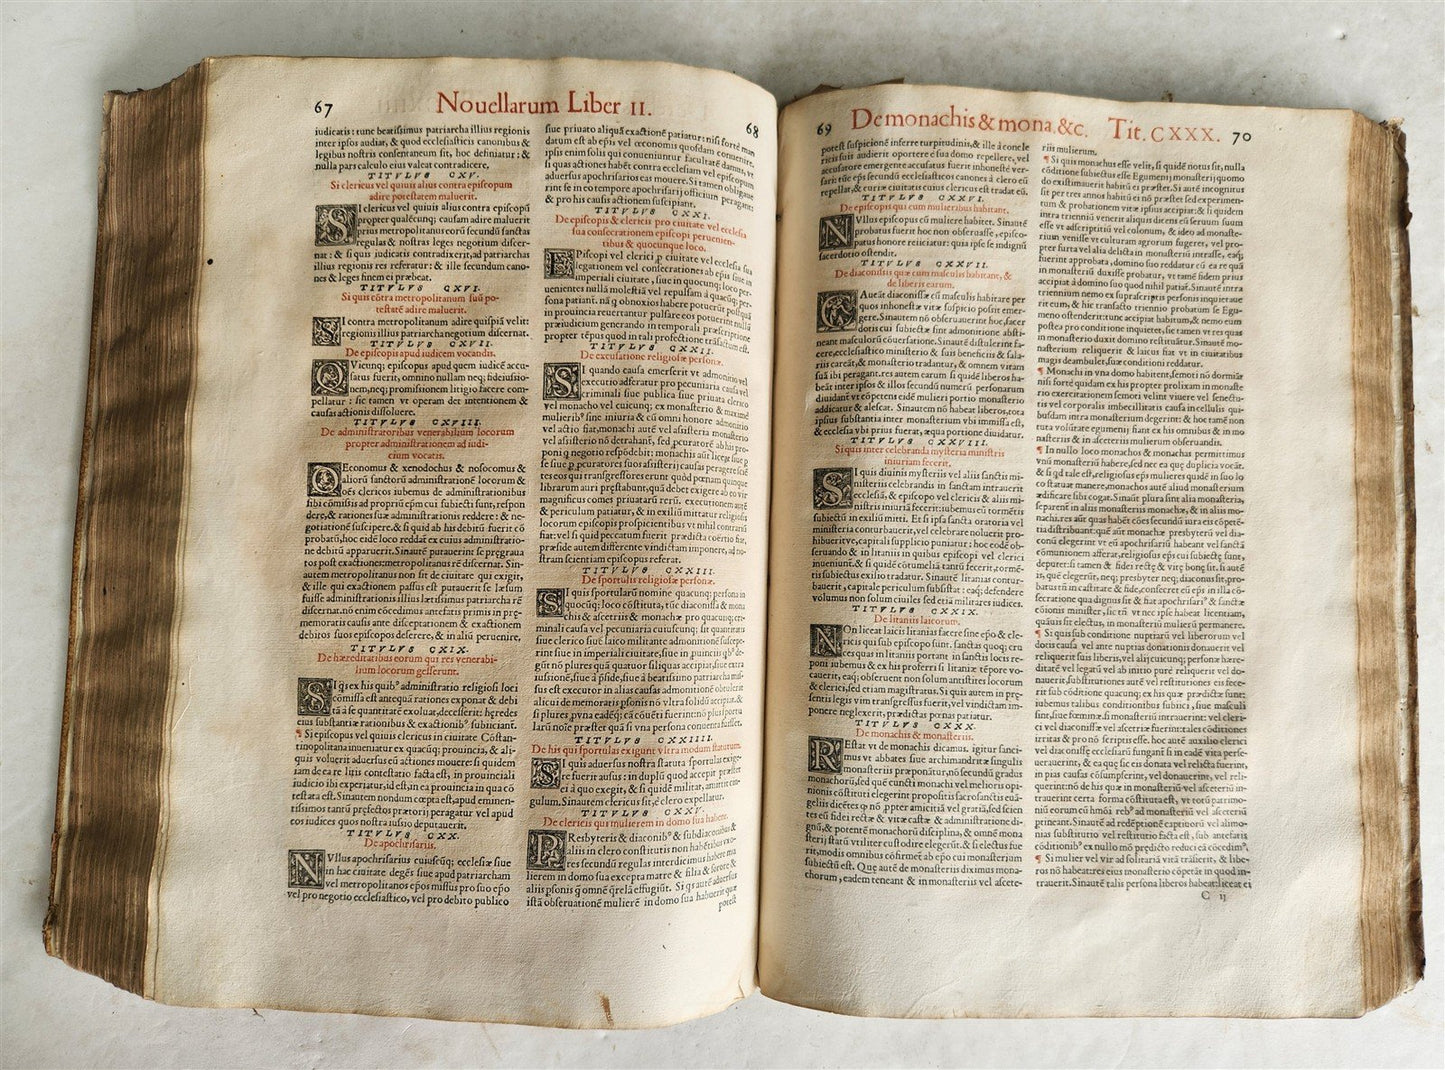 67
Nouellarum Liber II.
68
iudicatis: tunc beatissimus patriarcha illius regionis
inter ipsos audiat, & quod ecclesiasticis canonibus &
legibus nostris consentaneum sit, hoc definiatur: &
nulla pars calculo eius valeat contradicere.
TITVLVS CXV.
Si clericus vel quiuis alius contra episcopum
adire potestatem maluerit.
SI clericus vel quiuis alius contra episcopū
propter qualēcunq; causam adire maluerit
prius metropolitanus eorū secundū sanctas
regulas & nostras leges negotium discer-
nat: & si quis iudicatis contradixerit, ad patriarchas
illius regionis res referatur: & ille secundum cano-
nes & leges finem ei præbeat.
TITVLVS CXVI.
Si quis cōtra metropolitanum suū po-
testatē adire maluerit.
SI contra metropolitanum adire quispiā velit:
regionis illius patriarcha negotium discernat.
TITVLVS CXVII.
De episcopis apud iudicem vocandis.
QVicunq; episcopus apud quem iudicē accu-
satus fuerit, omnino nullam neq; fideiussio-
nem, neq; promissionem litigio facere com-
pellatur: sic tamen vt operam det intentionem &
causas actionis dissoluere.
TITVLVS CXVIII.
De administratoribus venerabilium locorum
propter administrationem ad iudi-
cium vocatis.
OEconomus & xenodochus & nosocomus &
aliorū sanctorū administrationē locorum &
oēs clericos iubemus de administrationibus
sibi cōmissis ad propriū epm cui subiecti sunt, respon
dere, & rationes suæ administrationis reddere: & ne-
gotiationē suscipere, & si quid ab his debitū fuerit cō
probatū, hoc eidē loco reddāt ex cuius administratio-
ne debitū apparuerit. Sinautē putauerint se pręgraua
tos post exactiones: metropolitanus rē discernat. Sin-
autem metropolitanus non sit de ciuitate qui exigit,
& ille qui exactionem passus est putauerit se læsum
fuisse administrationis illius lætissimus patriarcha rē
discernat. nō enim cōcedimus antefatis primis in prę
memoratis causis ante disceptationem & exactionem
debitos suos episcopos deserere, & in aliū peruenire,
TITVLVS CXIX.
De hæreditatibus eorum qui res venerabi-
lium locorum gesserunt.
SI qs ex his quibꝰ administratio religiosi loci
cōmissa est antequā rationes exponat & debi
tā a se quantitatē exoluat, decesserit: hęredes
eius substantiæ rationibus & exactionibꝰ subiiciant.
¶ Si episcopus vel quiuis clericus in ciuitate Cōstan-
tinopolitana inueniatur ex quacūq; prouincia, & ali-
quis voluerit aduersus eū actiones mouere: si quidem
iam de ea re litis contestatio facta est, in prouinciali
iudicio ibi experiatur, id est, in ea prouincia in qua cō
testata est. Sinautem nondum cœpta est, apud eminen-
tissimos tantū pręfectos prætorij peragatur vel apud
eos iudices quos nostra iussio deputauerit.
TITVLVS CXX.
De apochrisariis.
NVllus apochrisarius cuiuscūq; ecclesiæ siue
in hac ciuitate degēs siue apud patriarcham
vel metropolitanos epos missus pro suo epo
vel pro negotio ecclesiastico, vel pro debito publico
siue priuato aliquā exactionē patiatur: nisi forte man
datum est ab epis vel œconomis quosdam conuenire,
ipsis enim solis qui conueniuntur facultatē damus, vt
si quas actiones habēt contra ecclesiam vel episcopum
aduersus apochrisarios eas mouere. Si tamen obligaue
rint se in eo tempore apochrisarij officium peragant:
& pro his causis actionem suscipiant.
TITVLVS CXXI.
De episcopis & clericis pro ciuitate vel ecclesia
sua consecrationem episcopi peruenien-
tibus & quocunque loco.
EPiscopi vel clerici p ciuitate vel ecclesia sua
legationem vel consecrationes ab epis siue in
imperiali ciuitate, siue in quocunq; loco per-
uenientes nullā molestiā vel repulsam a quacūq; per-
sona patiant. nā q obnoxios habere potuerūt postquā
in prouincia reuertantur pulsare eos poterunt: nullū
præiudicium generando in temporali præscriptione
propter tēpus quod in tali profectione trāsactum est.
TITVLVS CXXII.
De excusatione religiosæ personæ.
SI quando causa emerserit vt admonitio vel
executio adferatur pro pecuniaria causa vel
criminali siue publica siue priuata clerico
vel monacho vel cuicunq; ex monasterio & maximē
mulieribꝰ sine iniuria & cū omni honore admonitio
vel actio fiat, monachi autē vel asisteria monasterio
vel asisterio nō detrahant, sed pcuratorē ab his pro
poni q negotio respōdebit: monachis autē licet siue p
se siue p pcuratores suos asisterij causas peragere sciē
tes eos qui transgressores erunt quòd pœnam quinque
librarum auri pręstabunt, quā debet exigere ab eo vir
magnificus comes priuatarū rerū. executionem autē
& periculum patiatur, & in exiliū mittatur religiosis
locorum episcopis prospicientibus vt nihil contrariū
fiat: vel si quid peccatum fuerit prædicta coertio fiat,
præside autem differente vindictam imponere, ad no-
stram scientiam episcopus referat.
TITVLVS CXXIII.
De sportulis religiosæ personæ.
SI quis sportularū nomine quacunq; persona in
quocūq; loco cōstituta, tūc diaconissa & mona
chis & ascetriis & monachæ pro quacunq; cri-
minali causa vel pecuniaria cuiuscunq; sit quantitatis
siue clerico siue laico militante admonitione suscepe-
rint siue in imperiali ciuitate, siue in puinciis qbꝰ de-
gūt nō plures quā quatuor siliquas accipiat, siue extra
iussionē, siue a pside, siue a beatissimo patriarcha mis-
sus est executor in alias causas admonitionē obtulerit
alicui de memoratis psonis nō vltra solidū accipiat, &
si plures pvna eadēq; cā cōueti fuerint: nō plus portu
larū noīe præster quā si vna persona conuenta fuisset.
TITVLVS CXXIIII.
De his qui sportulas exigunt vltra modum statutum.
SI quis aduersus nostra statuta sportulas exige-
re fuerit ausus: in duplū quod accepit præstet
ei a quo exegit, & si quidē militat, amittit cin-
gulum. Sinautem clericus sit, ē clero expellatur.
TITVLVS CXXV.
De clericis qui mulierem in domo sua habent.
PResbyteris & diaconibꝰ & subdiaconibus &
aliis in clero constitutis non habētibus vxo-
res secundū regulas interdicimus habere mu
lierem in domo sua excepta matre & filia & sorore, &
aliis psonis q omnē qrelā effugiūt. Si qs autē aduersus
istā obseruationē mulierē in domo sua habuerit quæ
potest
69
De monachis & mona. &c. Tit. CXXX.
70
potest suspicionē inferre turpitudinis, & ille à concle
ricis suis audierit oportere ē sua domo repellere, vel
accusatore emergente accusatus fuerit inhoneste ver-
sari: tūc eps secundū ecclesiasticos canones à clero eū
repellat, & curiæ ciuitatis cuius clericus est tradat eū.
TITVLVS CXXVI.
De episcopis qui cum mulieribus habitant.
NVllus episcopus cū muliere habitet. Sinautē
probatus fuerit hoc non obseruasse, episco-
patus honore reiiciatur: quia ipse se indignū
sacerdotio ostendit.
TITVLVS CXXVII.
De diaconissis quæ cum masculis habitant, &
de liberis earum.
CAuteāt diaconissæ cū masculis habitare per
quos inhonestæ vitæ suspicio possit emer-
gere. Sinautem nō obseruauerint hoc, sacer
dotis cui subiectæ sint admonitione absti-
neant masculorū cōuersatione. Sinautē distulerint fa-
cere, ecclesiastico ministerio & suis beneficiis & sala-
riis careāt, & monasterio tradantur, & omnem vitam
suā ibi peragant. res autem earum si quidē liberos ha-
beāt inter ipsos & illos secundū numerū personarum
diuidant vt cōpetens eidē mulieri portio monasterio
addicatur & alescat. Sinautem nō habeat liberos, tota
ipsius substantia inter monasterium vbi immissa est,
& ecclesia vbi prius fuerat, æqua portione diuidatur.
TITVLVS CXXVIII.
Si quis inter celebranda mysteria ministris
iniuriam fecerit.
SI quis diuinis mysteriis vel aliis sanctis mi-
nisteriis celebrandis in sanctam intrauerit
ecclesiā, & episcopo vel clericis & aliis mi-
nistris iniuriā fecerit: iubemus eū tormētis
subiectū in exiliū mitti. Et si ipsa sancta oratoria vel
ministeria conturbauerit, vel celebrare noluerit pro-
hibueritve, capitali supplicio puniatur: hoc eodē ob-
seruando & in litaniis in quibus episcopi vel clerici
inueniunt. & si quidē cōtumeliā tantū fecerit, tormē-
tis subiectus exilio tradatur. Sinautē litanias contur-
bauerit, capitale periculum subsistat: eaq; defendere
volumus non solum ciuiles sed etiā militares iudices.
TITVLVS CXXIX.
De litaniis laicorum.
NOn liceat laicis litanias facere sine epo & cle-
ricis qui sub episcopo sunt. sanctas quoq; cru
ces quas in litaniis portant in sanctis locis re-
poni iubemus & ex his proferri si litaniæ tēpore vo-
cauerit, eaq; obseruent non solum antistites locorum
& clerici, sed etiam magistratus. Si quis autem in pre-
sentis legis vim transgressus fuerit, vel vindictam im-
ponere neglexerit, prædictas pœnas patiatur.
TITVLVS CXXX.
De monachis & monasteriis.
REstat vt de monachis dicamus. igitur sanci-
mus vt abbates siue archimandritæ singulis
monasteriis præponātur, nō secundū gradus
monachorū, sed quē cuncti monachi vel melioris opi-
nionis cōstituti elegerint propositis sacrosanctis euā-
geliis dicētes q nō pter amicitiā vel gratiā, sed scien
tes eū fidei rectæ & vitæ castæ & administratione di-
gnū, & potentē monachorū disciplina, & omnē mona
sterij statū vtiliter custodire elegerūt. & si electus fue
rit, modis omnibus cōfirmet ab epo cui monasterium
subiectū est. Que autē de monachis diximus mona-
chorum, eadem teneant & in monasteriis vel ascete-
riis mulierum.
¶ Si quis monachus esse velit, si quidē notus sit, nulla
cōditione subiectus esse Egumeni monasterij quomo
do existimauerit habitū ei præstet. Si autē incognitus
sit per tres annos habitū ei nō præstet sed experimen-
tum & probationem vitæ ipsius accipiat: & si quidem
intra trienniū venerit aliquis dicens eū seruum suum
esse vt adscriptitiū vel colonum, & ideo ad monaste-
rium venisse vt culturam agrorum fugeret, vel pro-
pter furta vel alia delicta in monasteriū intraisse, eaq;
fuerint approbata, domino suo reddatur eū ea re quā
in monasteriū duxisse probatur, vt tamē fidem prius
accipiat à domino suo quod nihil patiat. Sinautē intra
triennium nemo ex suprascriptis personis inquietaue
rit eum, & hic transacto triennio probatum se Egu-
meno ostenderit: tunc accipiat habitum, & nemo eum
postea pro conditione inquietet, sic tamen vt res quas
monasterio duxit domino restituatur. Sinautē mo-
nasterium reliquerit & laicus fiat vt in ciuitatibus
magis deambulet, suæ conditioni reddatur.
¶ Monachi in vna domo habitent, semoti nō dormiāt
nisi forte quidam ex his propter prolixam in monaste
rio exercitationem semoti velint viuere vel senectu-
tis vel corporalis imbecillitatis causa in cellulis qui-
busdam intra monasterium degerint: & hoc tamē non
tuta volūtate egumenij fiant ex his omnibus & in mo
nasteriis & in asceteriis mulierum obseruandis.
¶ In nullo loco monachos & monachas permittimus
vnū monasteriū habere, sed nec ea quę duplicia vocāt.
& si qd tale est, religiosus eps mulieres quidē in suo lo
co statuat manere, monachos autē aliud monasterium
ædificare sibi cogat. Sinautē plura sint alia monasteria,
separent in aliis monasteriis monachæ, & in aliis mo-
nachi. res aūt quas habēt cōes secundū iura eis cōpetē-
tia distribuant: quē aūt monachæ presbyterū vel dia-
conū elegerint vt eū apochrisariū habeant vel sanctā
cōmunionem afferat, religiosus eps cui subiectę sunt,
deputet: si tamen & fidei rectę & vitę bonę sit. si autē
is, quē elegerūt, neq; presbyter neq; diaconus sit, pro-
batus tn in castitate & fide, consecret eū eps in illa cō-
secratione qua dignus sit & fiat apochrisariꝰ & sanctæ
cōionis minister, sic tn vt nec ipse habeat licentiam,
quāuis sit electus, in monasteriū mulierū permanere.
¶ Si quis sub conditione nuptiarū vel liberorum vel
dotis causa vel ante nuptias donationis donauerit vel
reliquerit suis liberis, vel alij cuicunq; personæ hære-
ditatē vel legatū vel ab initio pure reliquerit vel do-
nauerit, substitutiones autē vel restitutiones eis fece-
rit sub cōditione quacunq; ex his quæ prædictæ sunt:
iubemus talibus conditionibus subiici, siue masculi
sint, siue fœminæ, si monasteria intrauerint: vel cleri-
ci vel diaconissæ vel ascetriæ fuerint: tales cōditiones
irritas & pro nō scriptis esse. hoc autē auxilio clerici
vel diaconissæ ecclesiarū fungant si in eadē vita perse-
uerant, & ea quę sic eis donata vel relicta fuerint,
in pias causas cōsumpserint, vel donauerint, vel reli-
querint: nō de his quæ in monasteriū vel asceteriū in-
trauerint certa forma cōstituta est, vt totū patrimo-
niū eorum hmōi rebꝰ ad monasteriū vel asceteriū
ptineant. Sinautē ad redēptionē captiuorū vel alimo-
nias substitutio vel restitutio facta est, sub antefatis
conditionibꝰ ex nullo mō prędicto reduci eā cōcedimꝰ,
¶ Si mulier vel vir ad solitariā vitā trāsierit, & libe-
ros nō habeat: res eius monasterio cōpetāt in quod in-
trauerit. Sinautē talis persona liberos habeat: liceat ei
C ij